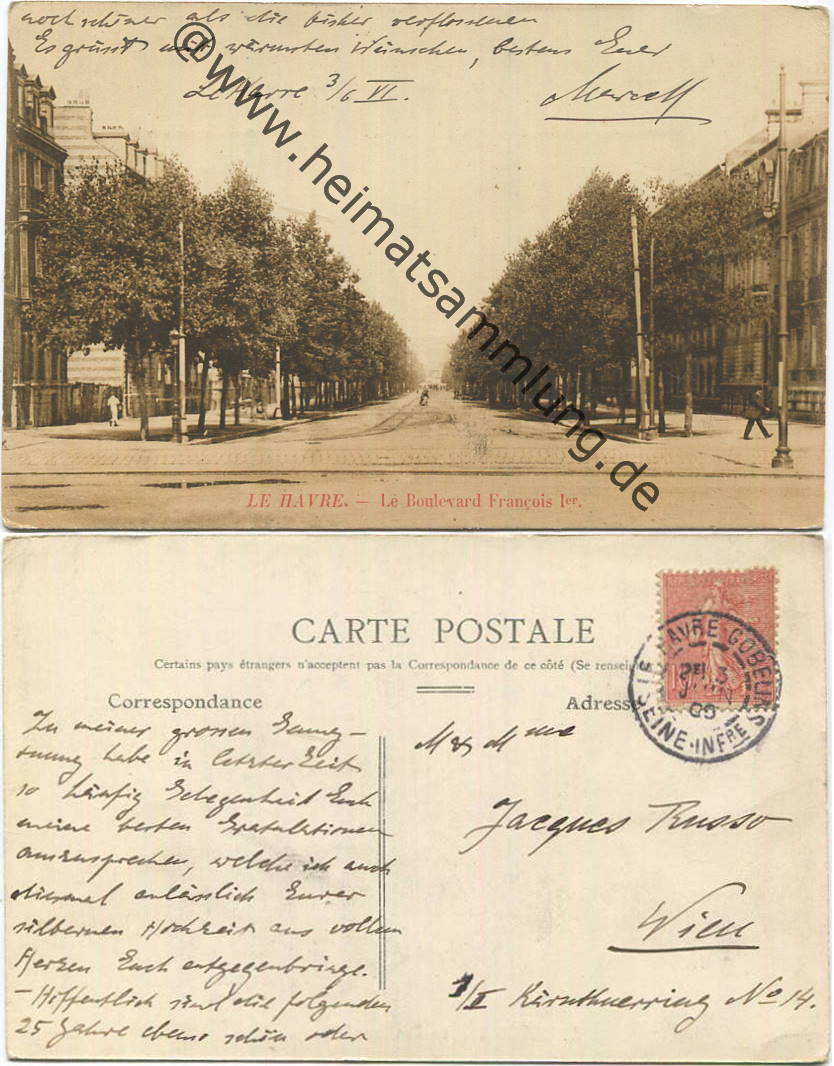 noch schöner als die bisher verflossenen
Es grüsst mit wärmsten Wünschen, bestens Euer
Le Havre 3/6 VI.
Marcell
©www.heimatsammlung.de
LE HAVRE. — Le Boulevard François Ier.
CARTE POSTALE
Certains pays étrangers n'acceptent pas la Correspondance de ce côté (Se rensei
Correspondance
Adresse
LE HAVRE GOBELINS
3
09
SEINE-INFRE
Zu meiner grossen Genug-
tuung habe in letzter Zeit
so häufig Gelegenheit Euch
meine besten Gratulationen
auszusprechen, welche ich auch
diesmal anlässlich Eurer
silbernen Hochzeit aus vollem
Herzen Euch entgegenbringe.
– Hoffentlich sind die folgenden
25 Jahre ebenso schön oder
M & Mme
Jacques Russo
Wien
I Kärnthnerring No 14.